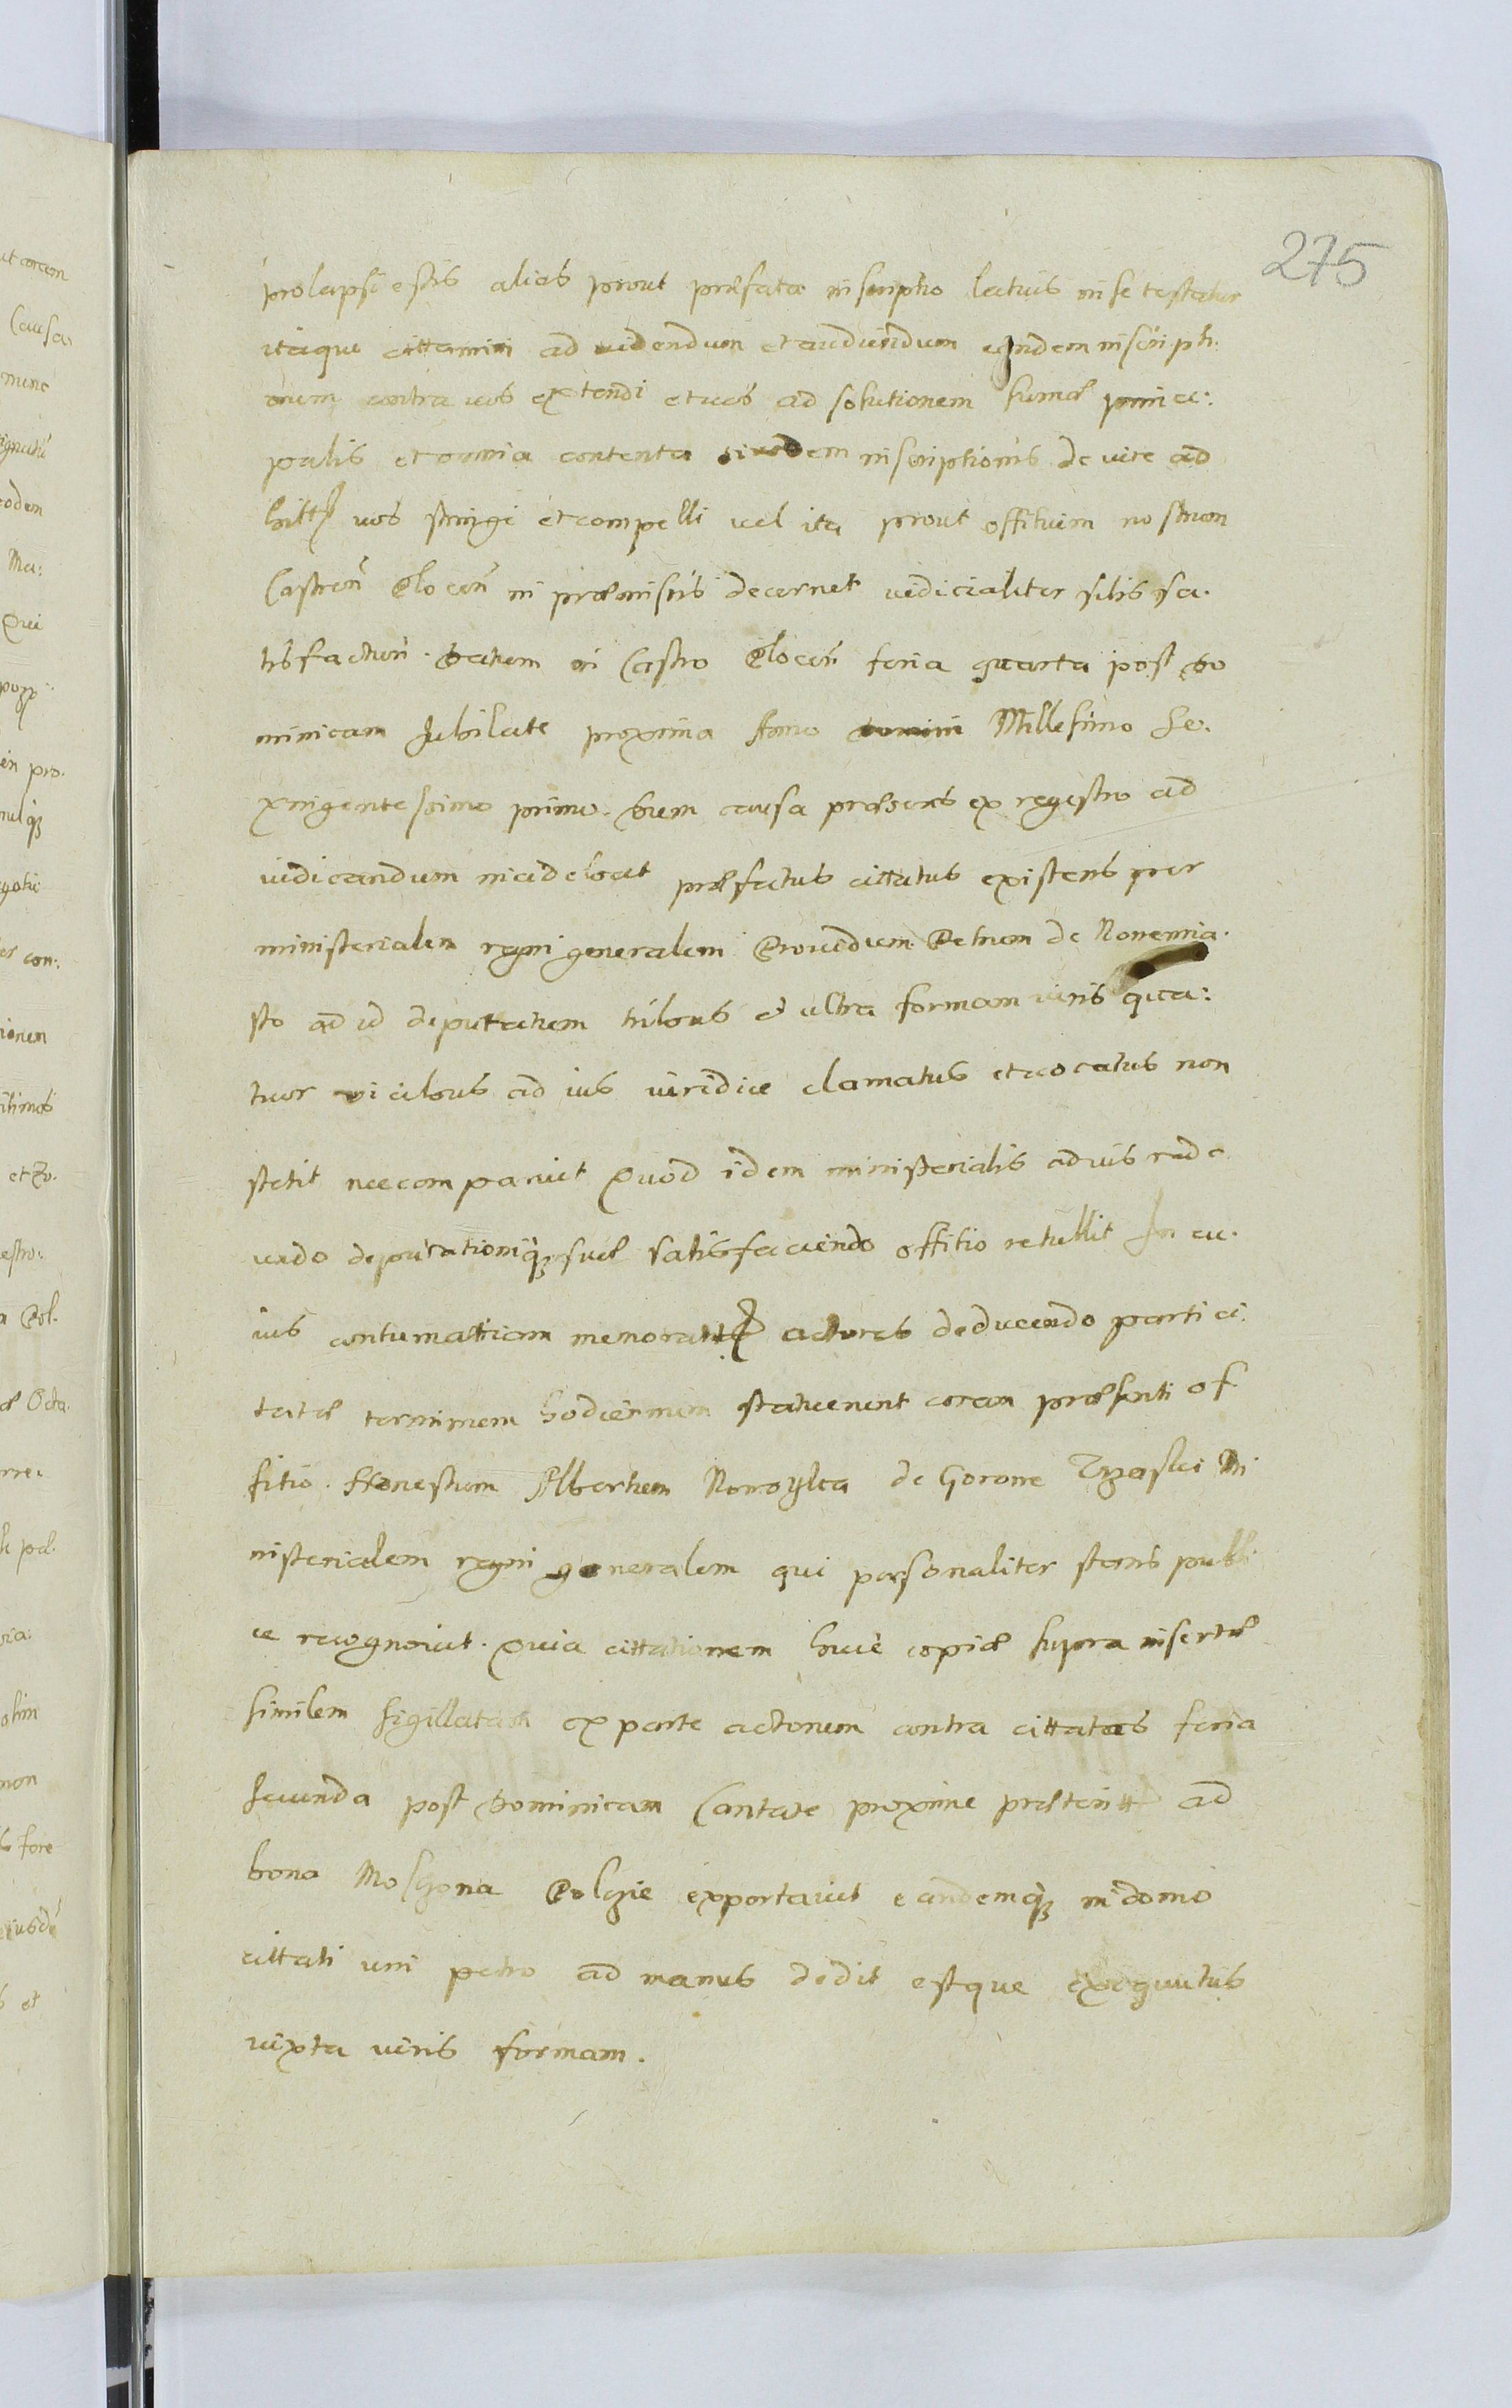 275
prolapsi estis alias prout præfata inscriptio latius in se testatur
itaque cittamini ad uidendum et audiendum eandem inscripti:
onem contra uos extendi et uos ad solutionem sumæ princi:
palis et omnia contenta eiusdem inscriptionis de iure ad
hitt uos stringi et compelli uel ita prout offitium nostrum
Castren Plocen in præmissis decernet iudicialiter sibis sa.
tisfacturi. Datum in Castro Plocen feria quarta post Do
minicam Jubilate proxima Anno Domini Millesimo Se.
xingentessimo primo. Dum causa præsens ex registro ad
iudicandum incidebat præfatus cittatus existens per
ministerialem regni generalem Prouidum Petrum de Nouemia.
sto ad id deputatum tribus et ultra formam iuris qua:
tuor uicibus ad ius iuridice clamatus et uocatus non
stetit nec comparuit Quod idem ministerialis ad ius rade
undo deputationiq suæ satisfaciendo offitio retullit In cu.
ius contumatiam memoratt actores deducendo parti ci.
tatæ terminum hodiernum statuerunt coram præsenti of
fitio. Honestum Albertum Nowoyka de Gorone Trzaski Mi
nisterialem regni generalem qui personaliter stans publi
ce recognouit. Quia cittationem huic copiæ supra insertæ
similem sigillatam ex parte actorum contra cittatos feria
secunda post Dominicam Cantate proxime præteritt ad
bona Mosgona Polgie exportauit eandemq in domo
cittati uni petro ad manus dedit estque exequutus
iuxta iuris formam.